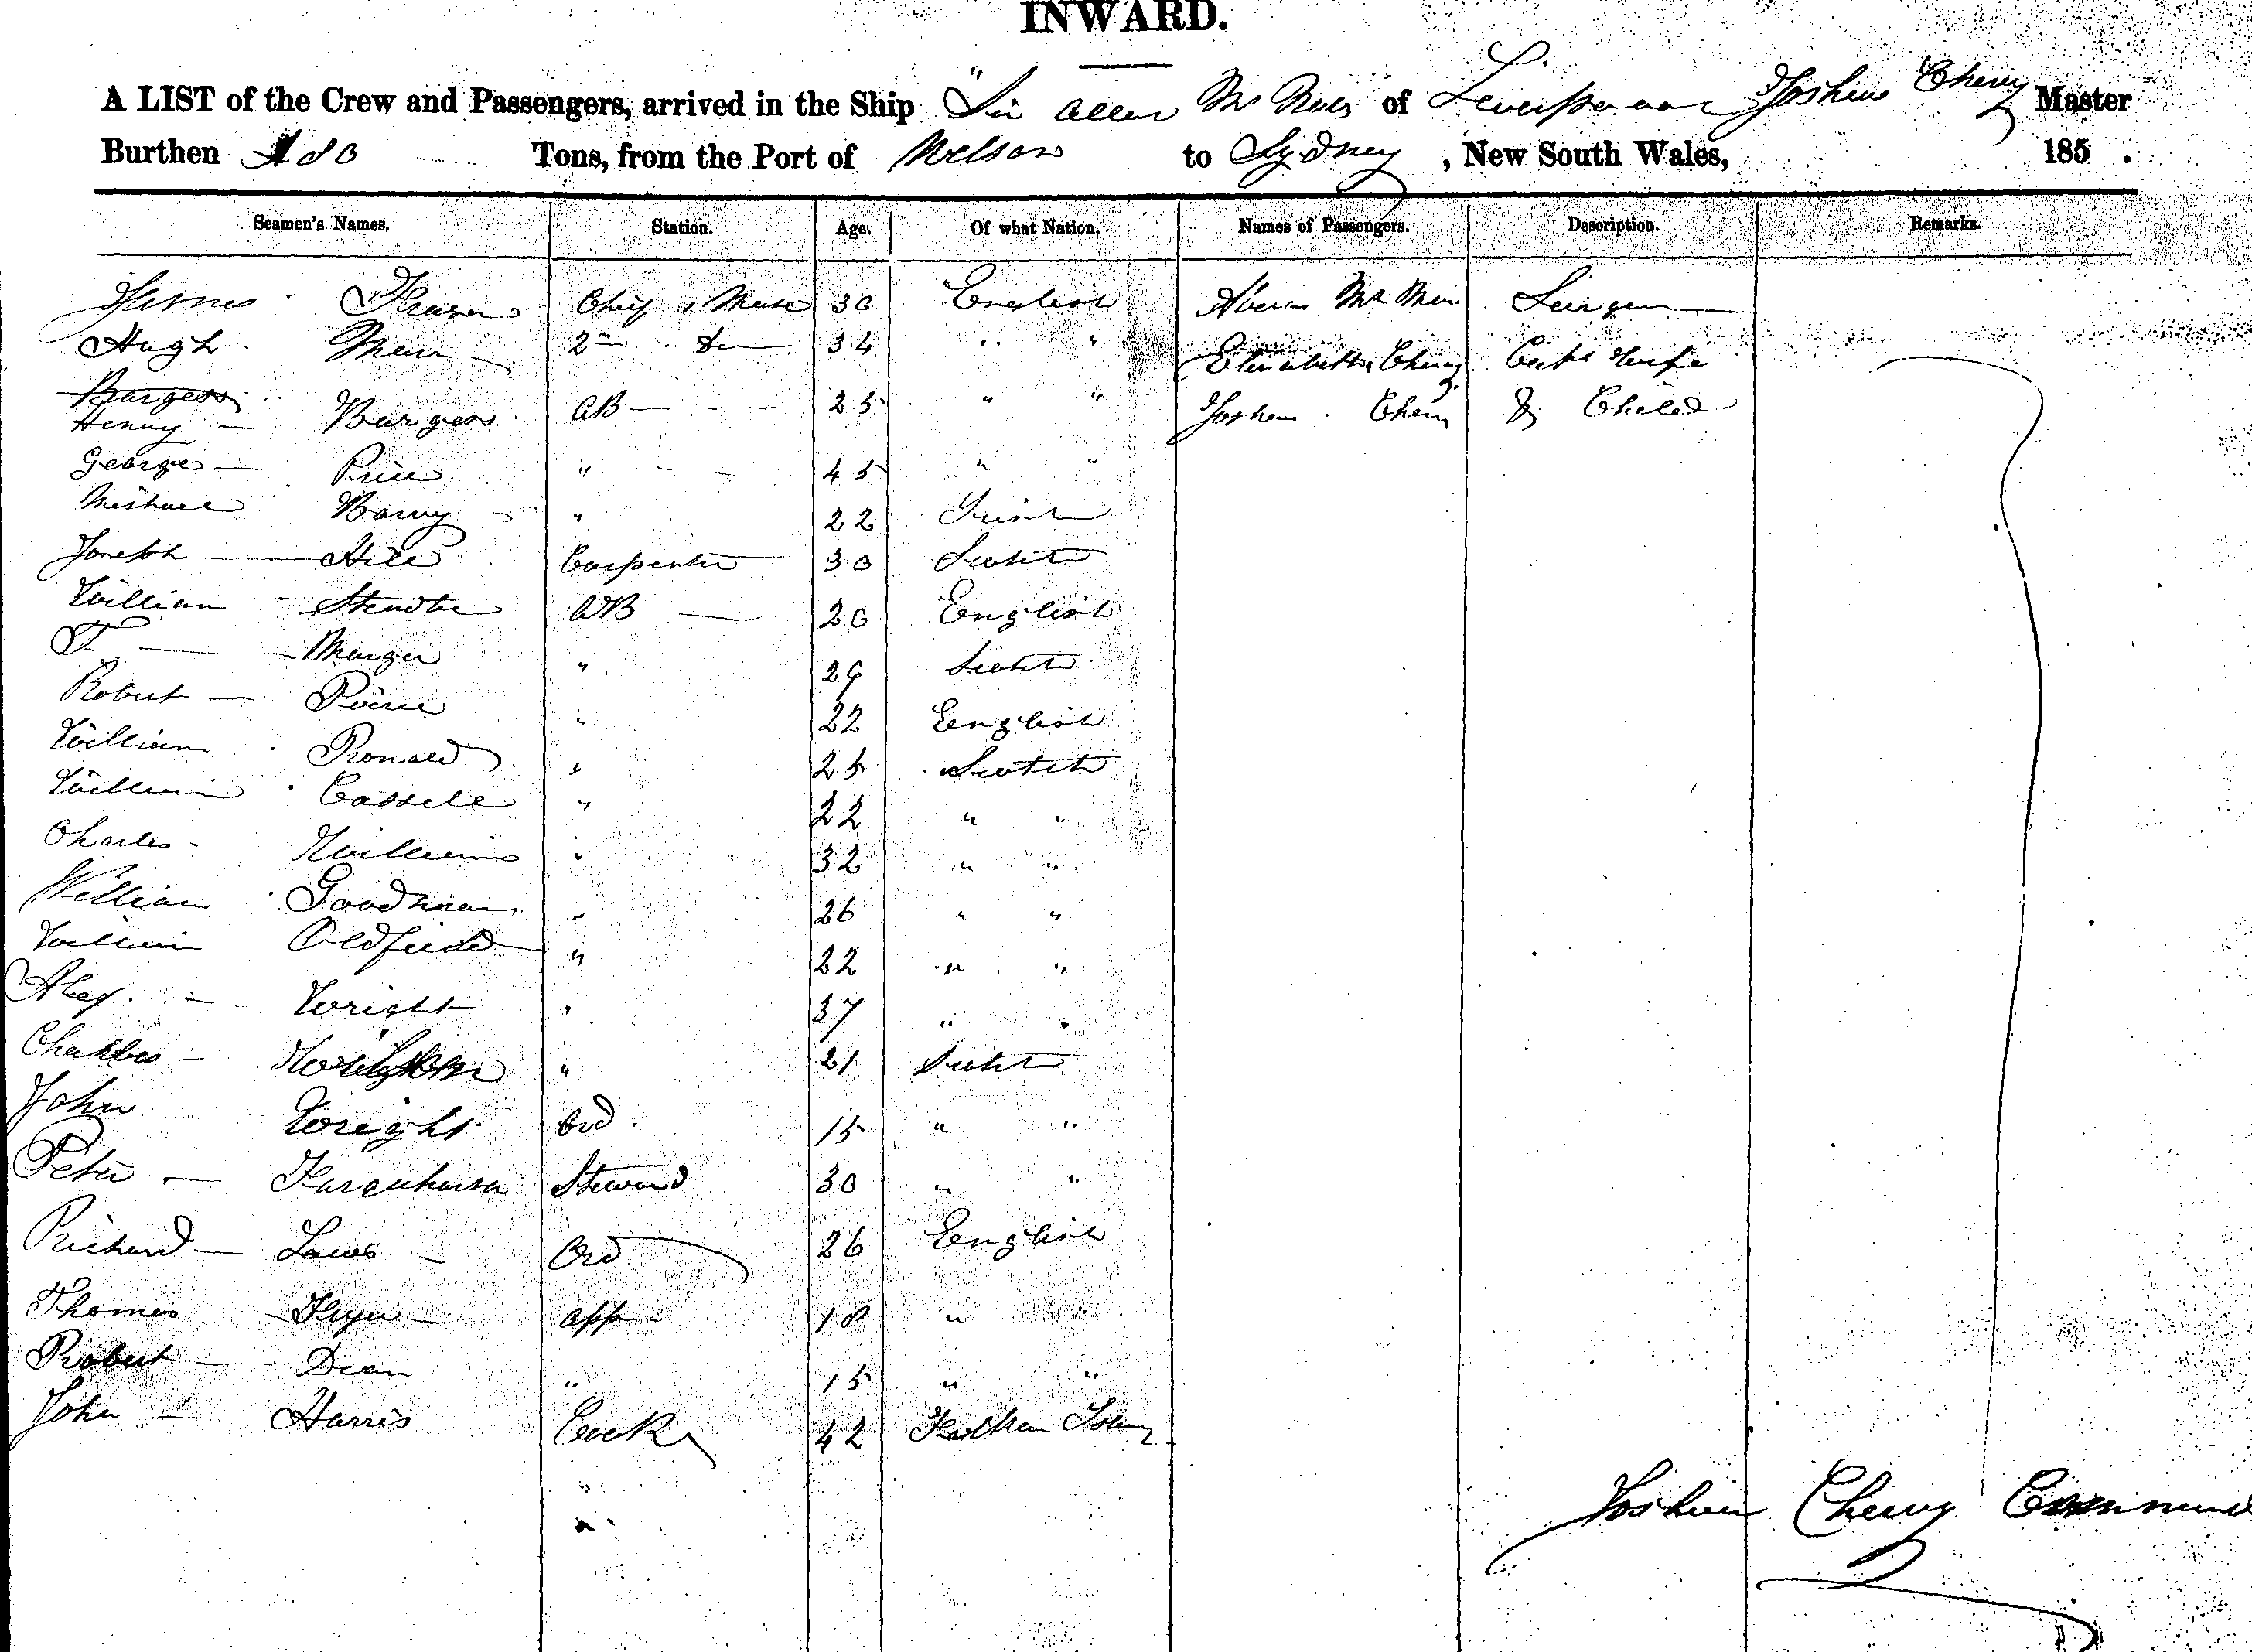 INWARD.
A LIST of the Crew and Passengers, arrived in the Ship "Sir Allan of Liverpool Joshua Cherry Master
Burthen Tons, from the Port of Nelson to Sydney, New South Wales, 185 .
Seamen's Names. Station. Age. Of what Nation. Names of Passengers. Description. Remarks.
James Chief Mate 30 English Surgeon
Hugh 2nd Do 34 " " Elizabeth Cherry Capt Wife
Burgess
Henry Burgess AB 25 " " Joshua Cherry & Child
George Price " 45 " "
Michael Barry " 22 Irish
Joseph Hill Carpenter 30 Scotch
William AB 20 English
T " 29 Scotch
Robert " 22 English
William Ronald " 25 Scotch
William Cassell " 22 " "
Charles William " 32 " "
William Goodman " 26 " "
William Oldfield " 22 " "
Alex. Wright " 37 " "
Charles " 21 Scotch
John Wright Ord 15 " "
Peter Farquharson Steward 30 " "
Richard Laws Ord 26 English
Thomas App 18 "
Robert Dean " 15 " "
John Harris Cook 42
"
"
Joshua Cherry